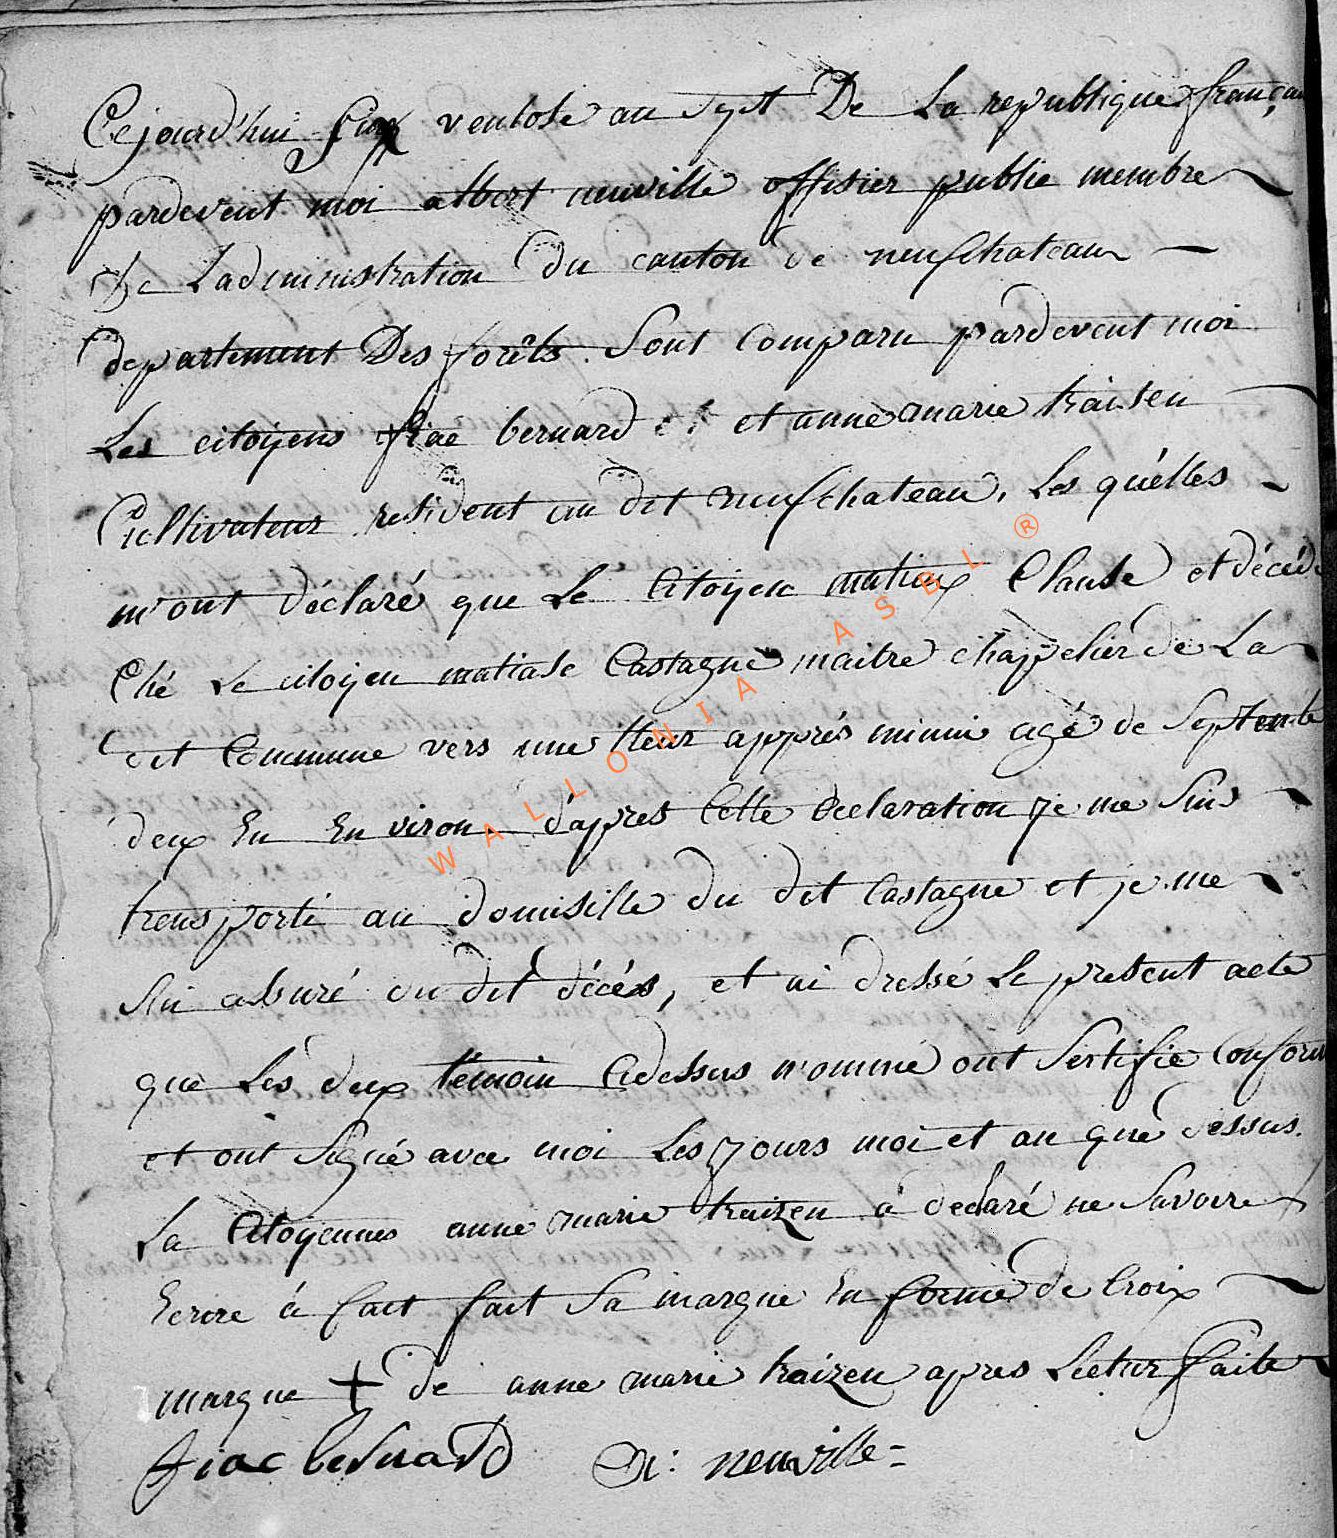 Cejourd'hui six ventose an sept De La republique françai
pardevent moi albert neuville offisier publie membre
De Ladministration du canton de neufchateau
departement Des forêts Sont Comparu pardevent moi
Les citoijens fiac bernard et anne marie traisen
Cultivateur resident au dit neufchateau, Les quélles
m'ont déclaré que Le Citoijen matieux Claude et décédé
Ché Le citoijen matiase Castagne maitre chappelier de La
dit Commune vers une Heur apprés minui agé de Septente
deux En En viron d'apres Cette declaration je me Suis
trensporté au domisille du dit Castagne et je me
Sui assuré du dit décés, et ai dressé Le present acte
que Les deux témoin Cidessus nommé ont Sertifie Conform
et ont Signé avec moi Les jours moi et an que dessus.
La Citoyennes anne marie traizen à declaré ne Savoire
Ecrire á fait fait Sa marque En forme de Croix
marque + de anne marie traizen apres Lectur faite
fiac bernard neuville
WALLONIA ASBL ®